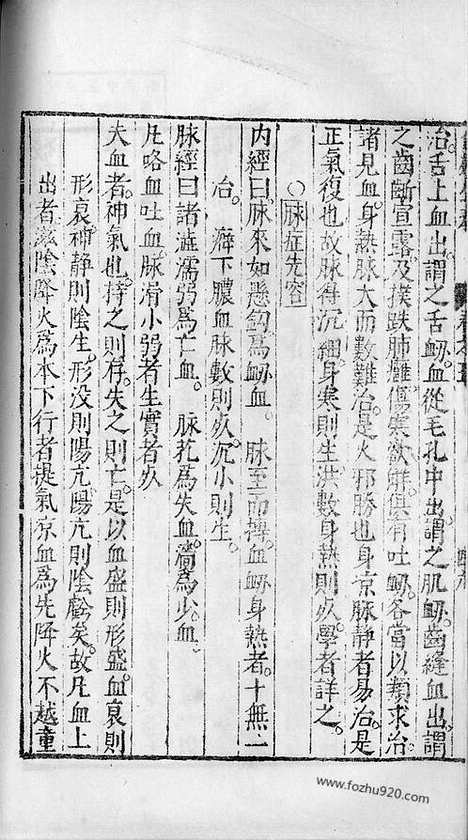 治。舌上血出。謂之舌衂。血從毛孔中出。謂之肌衂。齒縫血出。謂
之齒齗宣露。及撲跌肺癰傷寒欬
諸見血。身熱脉大而數難治。是火邪勝也。身凉脉靜者易治。是
正氣復也。故脉得沉細。身寒則生。洪數身熱則死。學者詳之。
○脉症先容
內經曰。脉來如懸鈎爲衂血。脉至而搏。血衂身熱者。十無一
治。澼下膿血。脉數則死。沉小則生。
脉經曰。諸澁濡弱爲亡血。脉芤爲失血。濇爲少血。
凡咯血吐血。脉滑小弱者生。實者死
夫血者。神氣也。持之則存。失之則亡。是以血盛則形盛。血衰則
形衰。神靜則陰生。形没則陽亢。陽亢則陰虧矣。故凡血上
出者。滋陰降火爲本。下行者。提氣凉血爲先。降火不越童
www.fozhu920.com